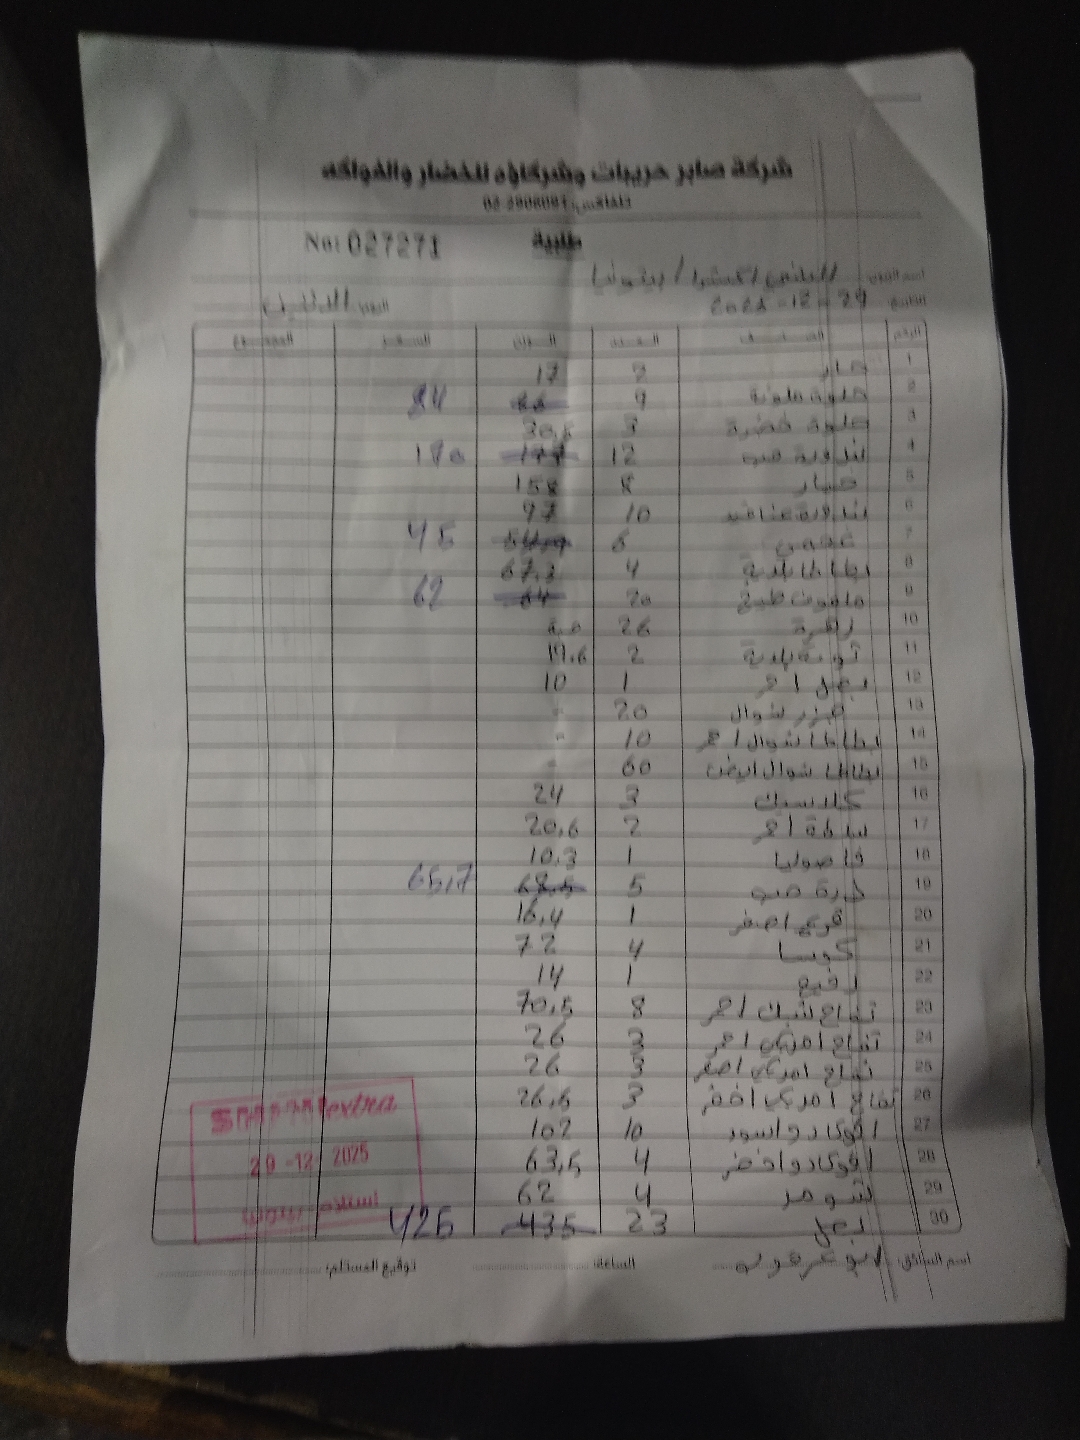 شركة صابر حريبات وشركاؤه للخضار والفواكه
تلفاكس: 02-2808081
No: 027271 طلبية
بيتونيا
التاريخ: 29-12-2025 اليوم: الاثنين
الرقم الصنف العدد الوزن السعر المجموع
1 حار 2 17
2 حلوة ملونة 9 84
3 حلوة خضرة 3 30,5
4 بندورة حب 12 177 170
5 خيار 8 158
6 بندورة عناقيد 10 97
7 6 45
8 بطاطا بلدية 4 67,3
9 ملفوف طبيخ 20 64 62
10 زهرة 26 حبة
11 ثومة بلدية 2 19,6
12 بصل احمر 1 10
13 جزر شوال 20 -
14 بطاطا شوال احمر 10 -
15 بطاطا شوال ابيض 60 -
16 كلاسيك 3 24
17 احمر 2 20,6
18 فاصوليا 1 10,3
19 درة حب 5 68,5 65,7
20 قرع اصفر 1 16,4
21 كوسا 4 72
22 رفيع 1 14
23 تفاح احمر 8 70,5
24 تفاح امريكي احمر 3 26
25 تفاح امريكي اصفر 3 26
26 تفاح امريكي اخضر 3 26,6
27 افوكادو اسود 10 102
28 افوكادو اخضر 4 63,5
29 شومر 4 62
30 بصل 23 435 425
extra
29-12-2025
استلام بيتونيا
اسم السائق: الساعة: توقيع المستلم: